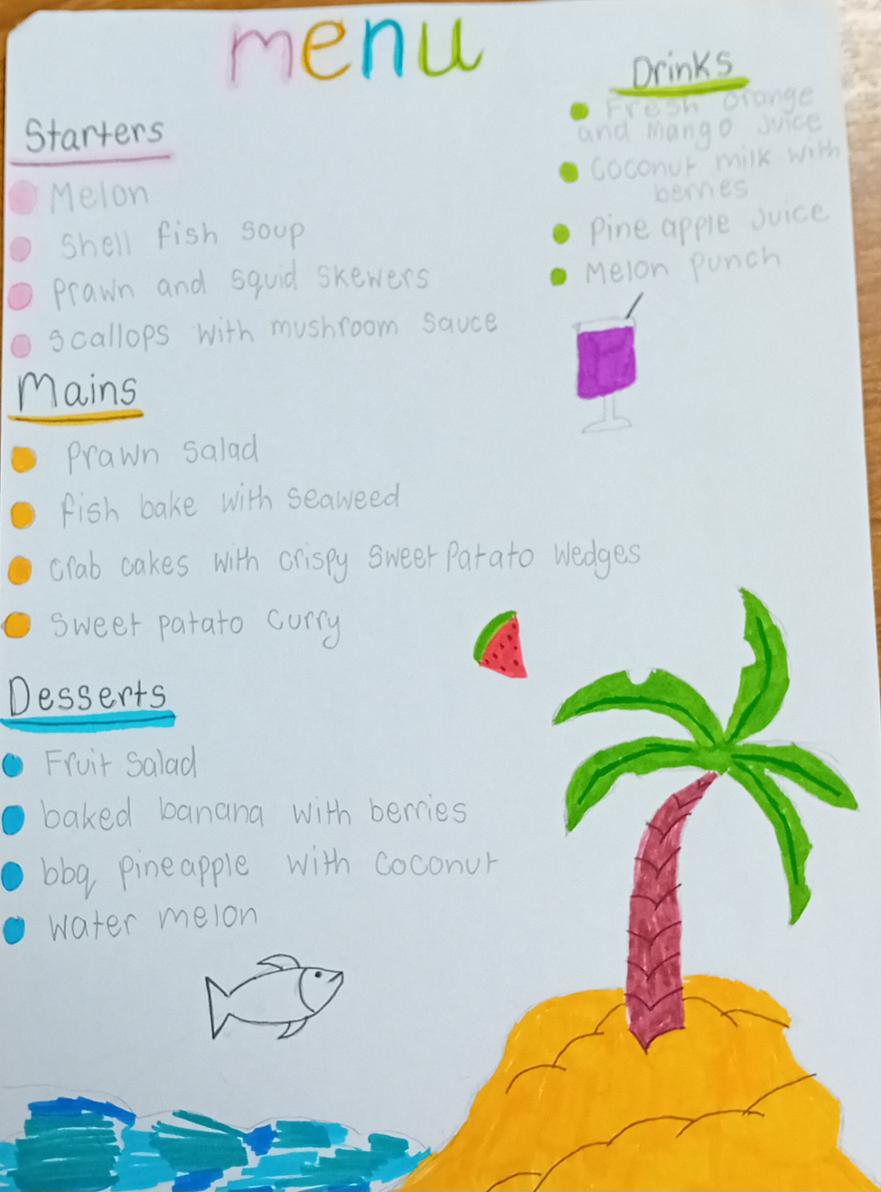 menu
Starters
Melon
Shell fish soup
Prawn and squid skewers
Scallops with mushroom sauce
Mains
Prawn Salad
fish bake with seaweed
Crab cakes with crispy sweet Patato wedges
Sweet patato curry
Desserts
Fruit Salad
baked banana with berries
bbq pineapple with coconut
water melon
Drinks
Fresh orange
and Mango Juice
Coconut milk with
berries
Pine apple Juice
Melon Punch